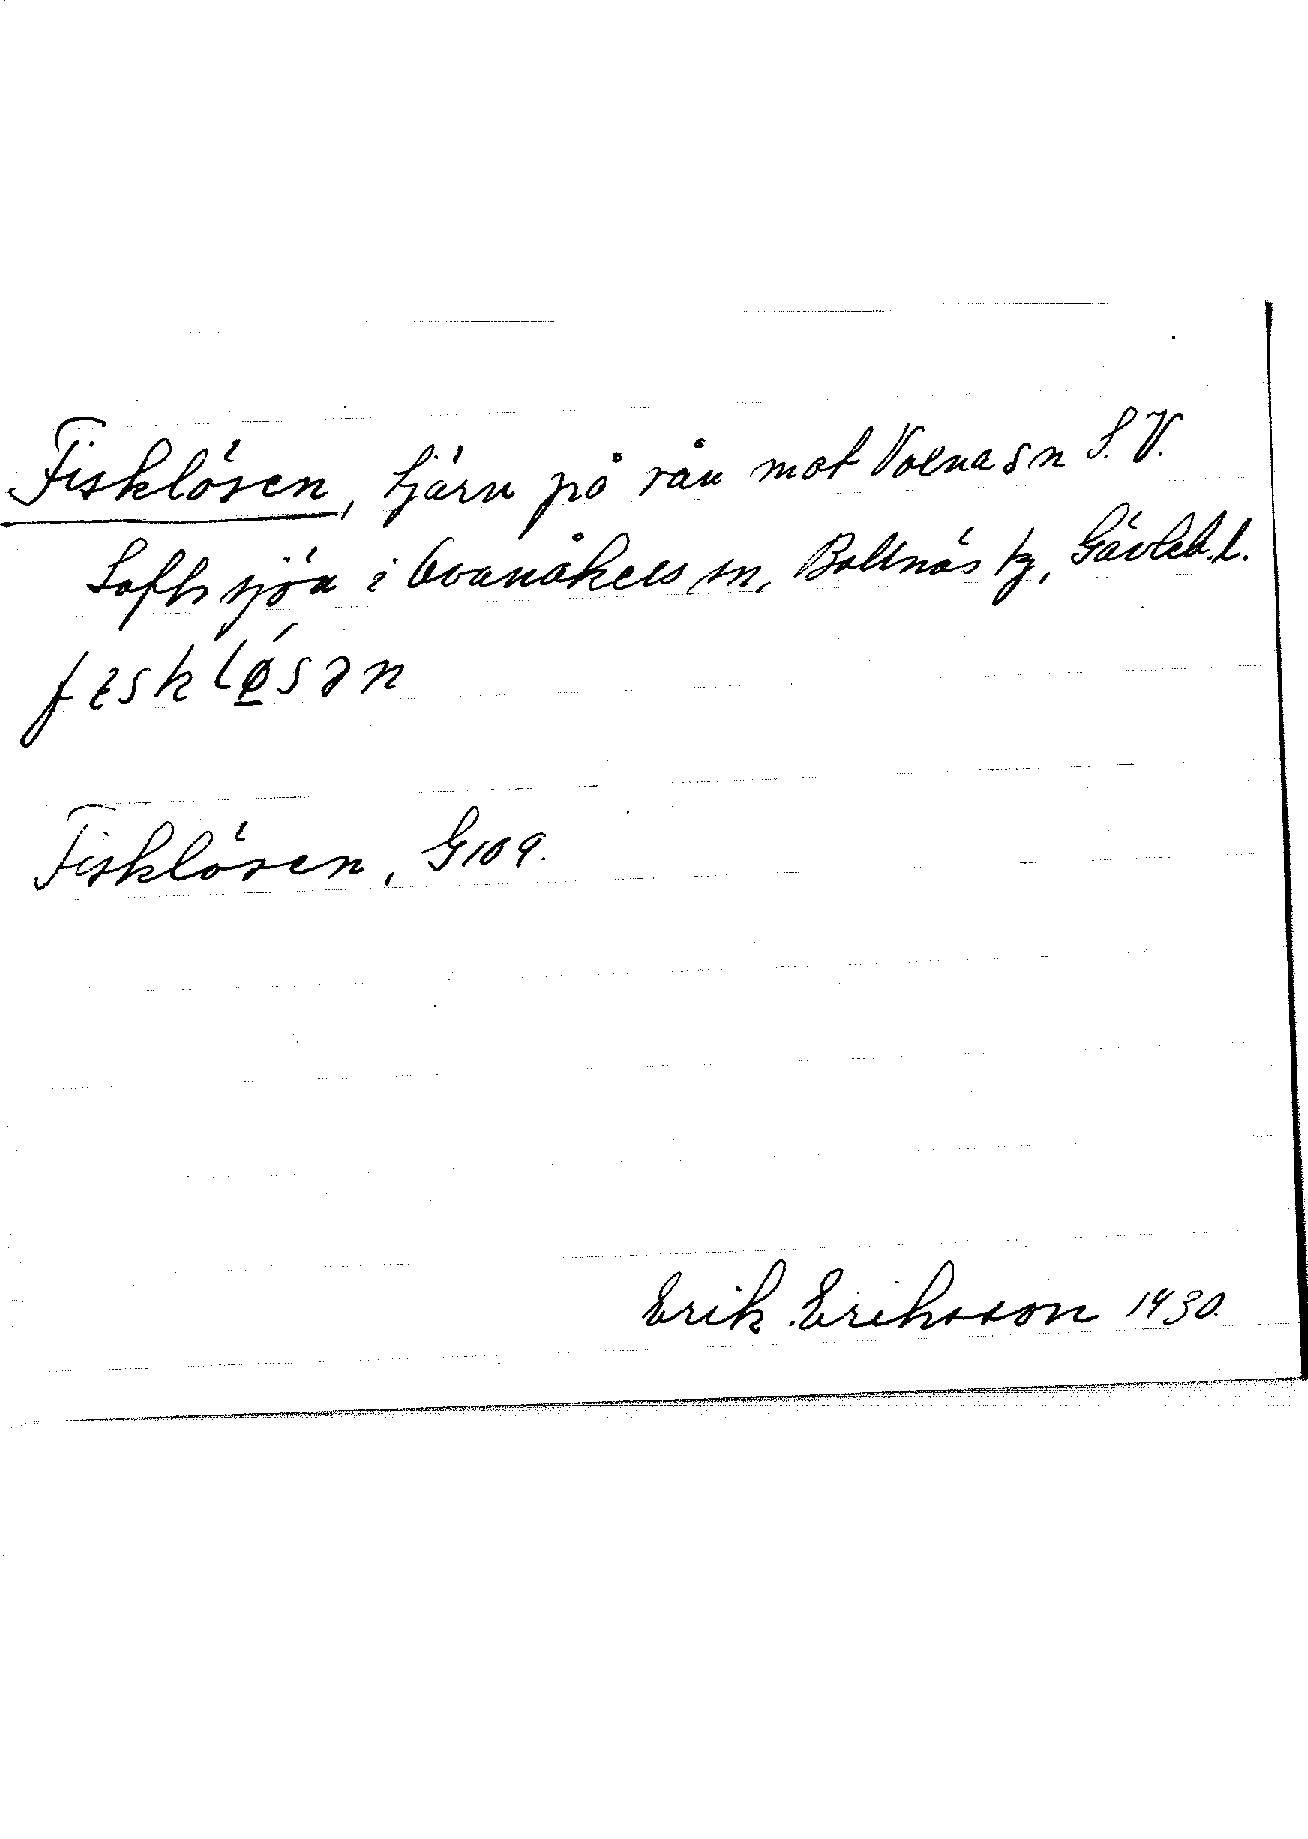 Fisklösen, tjärn på rån mot Voxna sn S.V.
Loftssjön i Ovanåkers sn, Bollnäs tg, Gävleb.l.
feskløsən
Fisklösen, G109.
Erik Eriksson 1930.